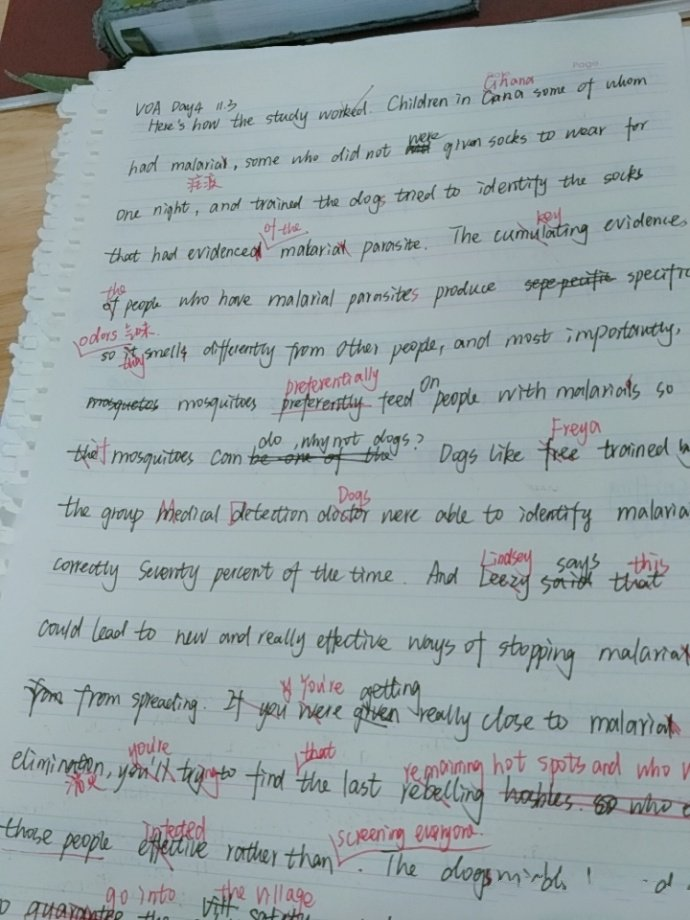 Page
VOA Day4 11.3
Ghana
Here's how the study worked. Children in Gana some of whom
were
had malarial, some who did not had given socks to wear for
疟疾
one night, and trained the dogs tried to identify the socks
of the
that had evidenced malarial parasite. The cumulating evidence,
key
the
of people who have malarial parasites produce sepe pecific specific
odors 气味
so it smells differently from other people, and most importantly,
they
preferentially
mosquetos mosquitoes preferently feed on people with malarials so
Freya
that mosquitoes can be one of the do, why not dogs? Dogs like free trained
Dogs
the group Medical Detection doctor were able to identify malaria
Lindsey says this
correctly seventy percent of the time. And Leezy said that
could lead to new and really effective ways of stopping malarial
If you're getting
from from spreading. If you were given really close to malarial
you're that remaining hot spots and who
elimination, you'll trying to find the last rebelling
消灭
infected screening everyone.
those people effective rather than. The dogs
go into the village
guarantee the